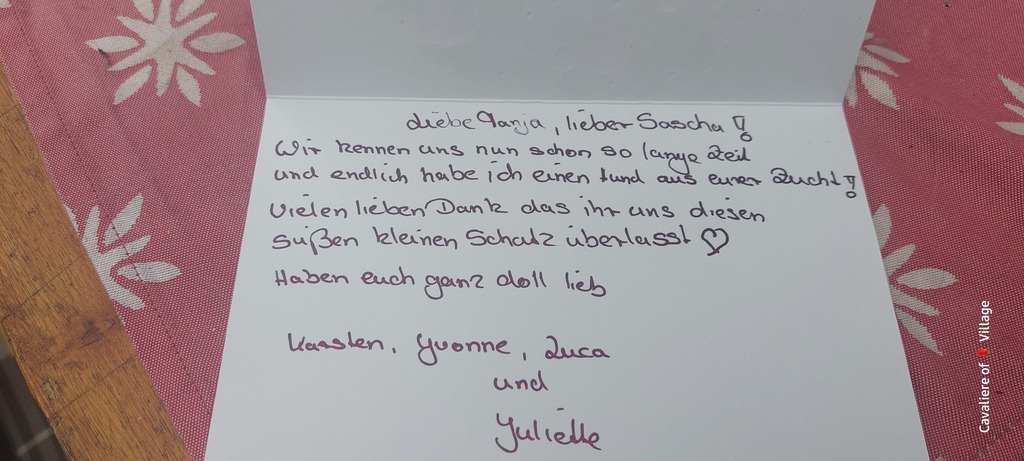 Liebe Tanja, lieber Sascha!
Wir kennen uns nun schon so lange Zeit
und endlich habe ich einen Hund aus eurer Zucht!
Vielen lieben Dank das ihr uns diesen
süßen kleinen Schatz überlasst ♡
Haben euch ganz doll lieb
Karsten, Yvonne, Luca
und
Yuliette
Cavaliere of ♥ Village